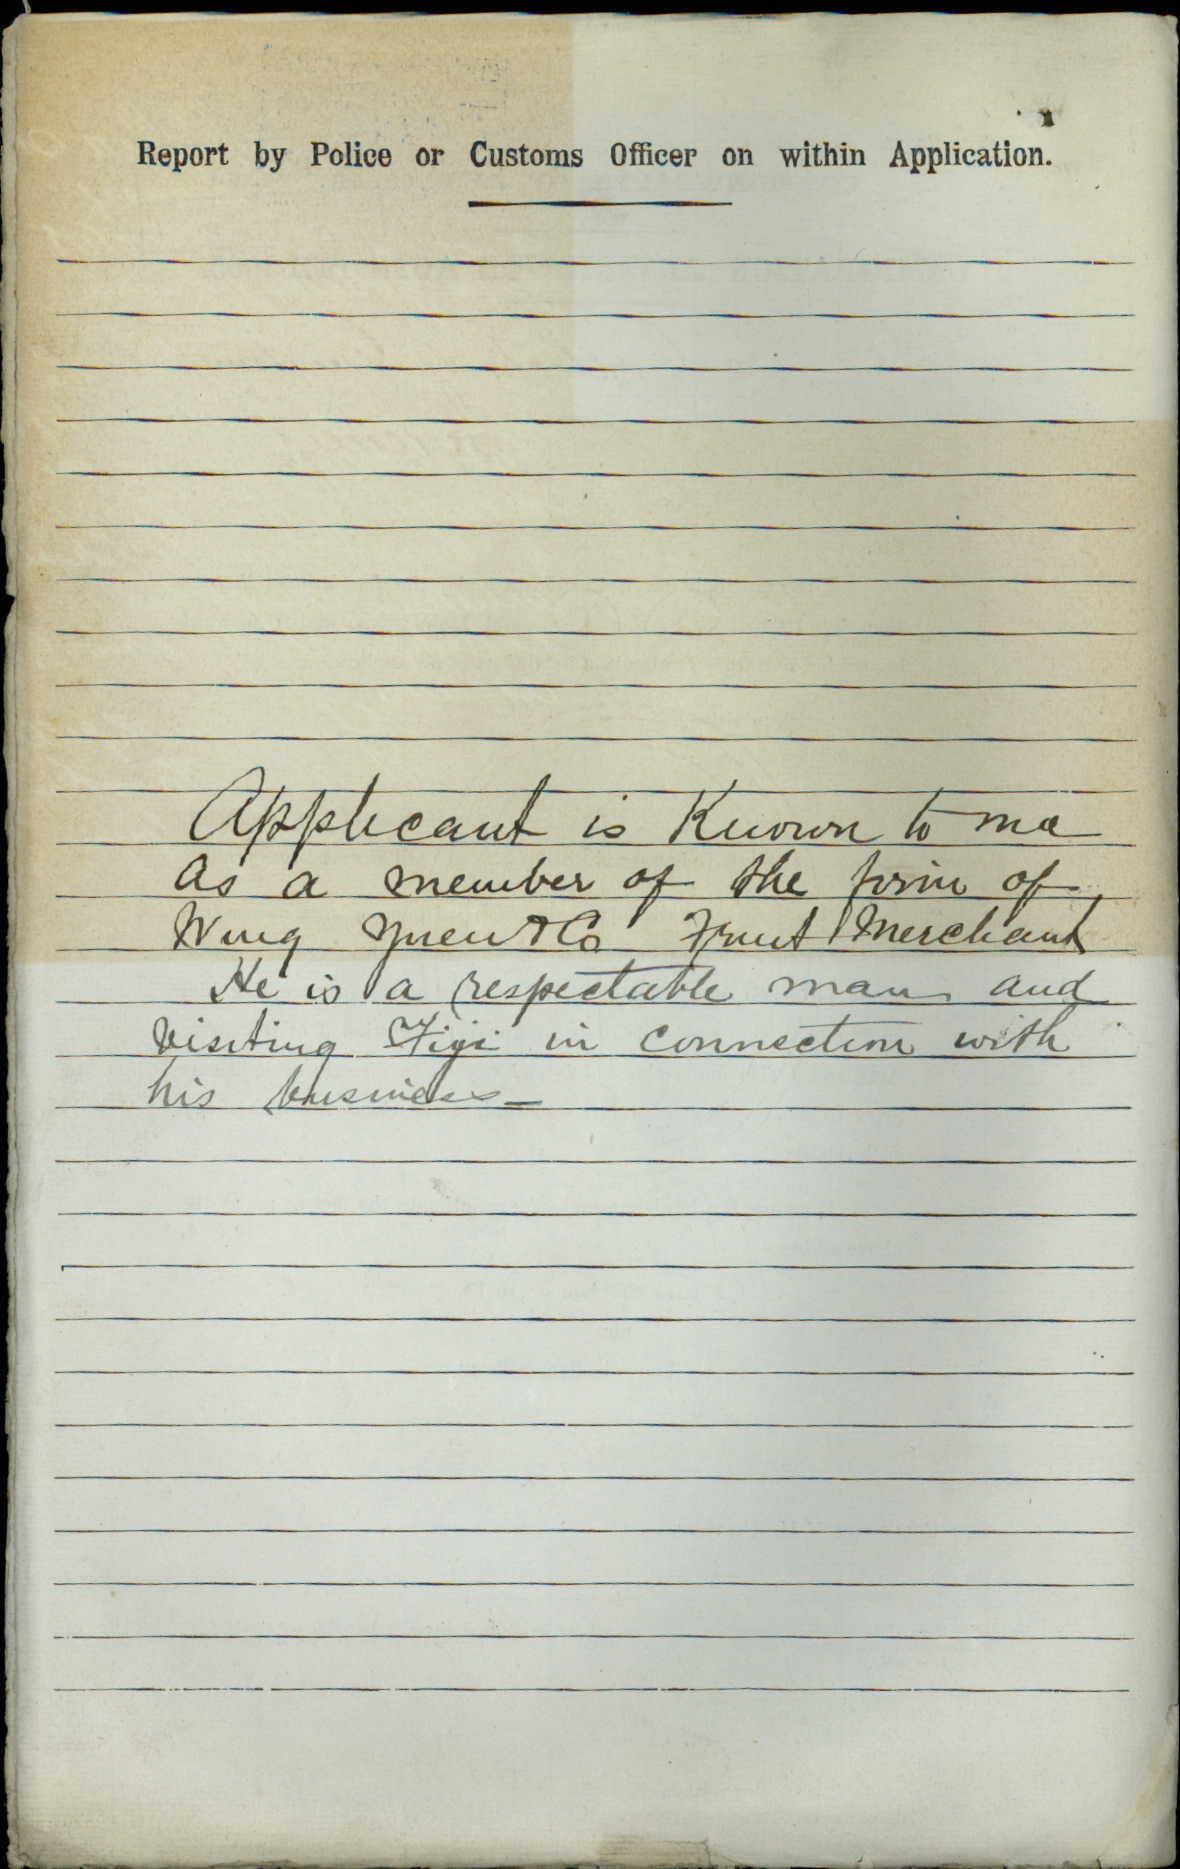 Report by Police or Customs Officer on within Application.
Applicant is Known to me
as a member of the firm of
Wing & Co Fruit Merchant
He is a respectable man and
visiting Fiji in connection with
his business—